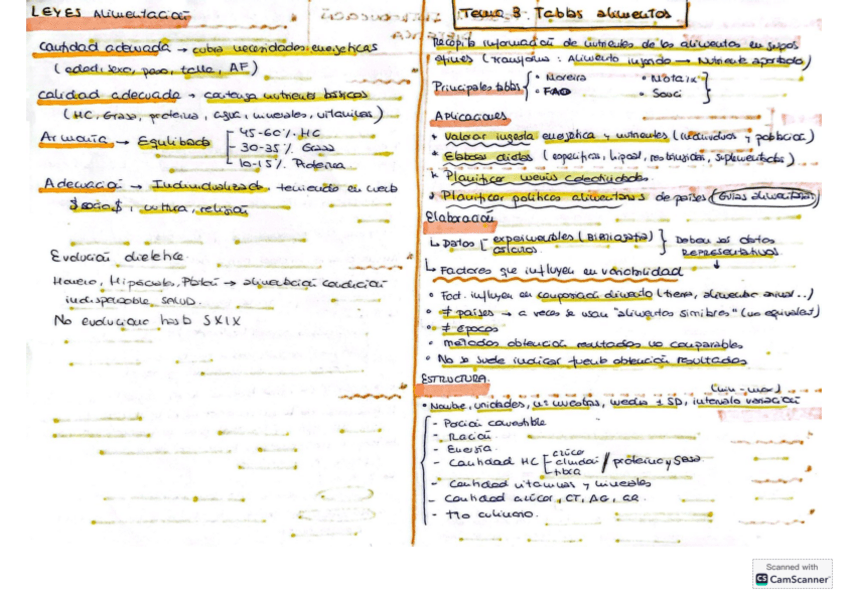 LEYES Alimentación
Cantidad adecuada → cubra necesidades energéticas
(edad, sexo, peso, talla, AF)
Calidad adecuada → contenga nutrientes básicos
(HC, Grasa, proteína, agua, minerales, vitaminas)
Armonía → Equilibrada [ 45-60% HC
- 30-35% Grasa
10-15% Proteína
Adecuación → Individualizada teniendo en cuenta
$ socio $, cultura, religión
Evolución dietética.
Homero, Hipócrates, Platón → alimentación condición
indispensable, SALUD.
No evoluciona hasta SXIX
Tema 3. Tablas alimentos
Recopila información de nutrientes de los alimentos en grupos
afines (transforma: Alimento ingerido → Nutriente aportado)
Principales tablas { • Moreira • Mataix
• FAO • Souci }
Aplicaciones
* Valorar ingesta energética y nutrientes (individuos y población)
* Elaborar dietas (específicas, hiposal, restringidas, suplementadas)
* Planificar menús colectividades.
* Planificar políticas alimentarias de países (Guías alimentarias)
Elaboración
↳ Datos [ experimentales (Bibliografía) } Deben ser datos
cálculos representativos
↳ Factores que influyen en variabilidad
• Fact. influyen en composición alimento (tierra, alimento animal..)
• ≠ países → a veces se usan "alimentos similares" (no equivalent)
• ≠ épocas
• métodos obtención resultados no comparables
• No se suele indicar fuente obtención resultados
ESTRUCTURA.
(min - max)
• Nombre, unidades, nº muestras, media ± SD, intervalo variación
- Porción comestible
- Ración
- Energía
- Cantidad HC [ azúcar almidón fibra / proteína y grasa.
- Cantidad vitaminas y minerales
- Cantidad azúcar, CT, AG,
- Tto culinario.
Scanned with
CS CamScanner